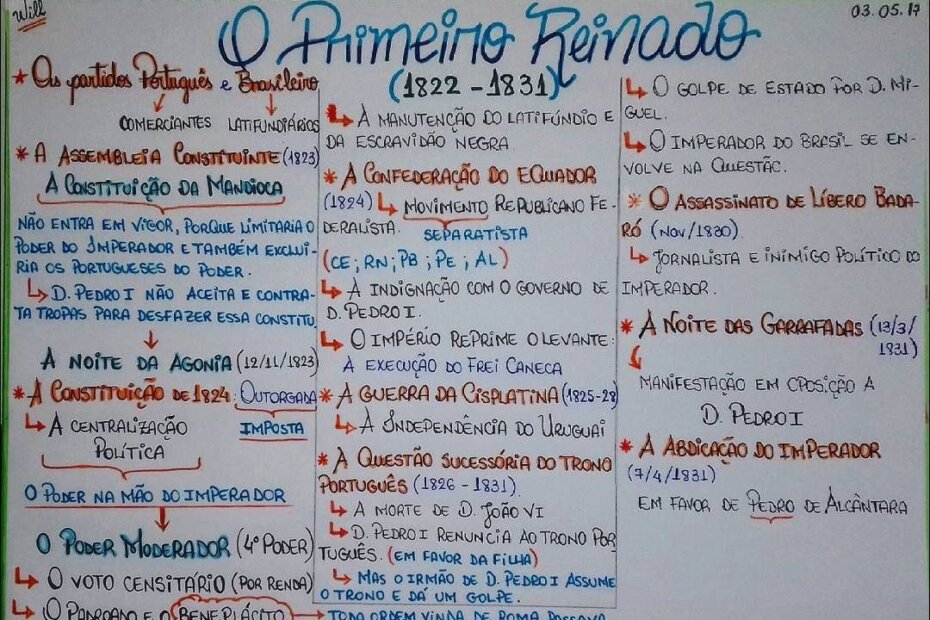 Will
03.05.17
O Primeiro Reinado
(1822 - 1831)
* Os partidos Português e Brasileiro
COMERCIANTES LATIFUNDIÁRIOS
* A ASSEMBLEIA CONSTITUINTE (1823)
A CONSTITUIÇÃO DA MANDIOCA
NÃO ENTRA EM VIGOR, PORQUE LIMITARIA O
PODER DO IMPERADOR E TAMBÉM EXCLUI-
RIA OS PORTUGUESES DO PODER.
↳ D. PEDRO I NÃO ACEITA E CONTRA-
TA TROPAS PARA DESFAZER ESSA CONSTITU.
↓
A NOITE DA AGONIA (12/11/1823)
* A CONSTITUIÇÃO DE 1824: OUTORGADA
↳ A CENTRALIZAÇÃO IMPOSTA
POLÍTICA
O PODER NA MÃO DO IMPERADOR
↓
O PODER MODERADOR (4º PODER)
↳ O VOTO CENSITÁRIO (POR RENDA)
↳ O PADROADO E O BENEPLÁCITO → TODA ORDEM VINDA DE ROMA PASSAVA
↳ A MANUTENÇÃO DO LATIFÚNDIO E
DA ESCRAVIDÃO NEGRA.
* A CONFEDERAÇÃO DO EQUADOR
(1824) ↳ MOVIMENTO REPUBLICANO FE-
DERALISTA. SEPARATISTA
(CE; RN; PB; PE; AL)
↳ A INDIGNAÇÃO COM O GOVERNO DE
D. PEDRO I.
↳ O IMPÉRIO REPRIME O LEVANTE:
A EXECUÇÃO DO FREI CANECA
* A GUERRA DA CISPLATINA (1825-28)
↳ A INDEPENDÊNCIA DO URUGUAI
* A QUESTÃO SUCESSÓRIA DO TRONO
PORTUGUÊS (1826 - 1831)
↳ A MORTE DE D. JOÃO VI
↳ D. PEDRO I RENUNCIA AO TRONO POR-
TUGUÊS. (EM FAVOR DA FILHA)
↳ MAS O IRMÃO DE D. PEDRO I ASSUME
O TRONO E DÁ UM GOLPE.
↳ O GOLPE DE ESTADO POR D. MI-
GUEL.
↳ O IMPERADOR DO BRASIL SE EN-
VOLVE NA QUESTÃO.
* O ASSASSINATO DE LÍBERO BADA-
RÓ (NOV/1830)
↳ JORNALISTA E INIMIGO POLÍTICO DO
IMPERADOR.
* A NOITE DAS GARRAFADAS (13/3/
1831)
MANIFESTAÇÃO EM OPOSIÇÃO A
D. PEDRO I
* A ABDICAÇÃO DO IMPERADOR
(7/4/1831)
EM FAVOR DE PEDRO DE ALCÂNTARA